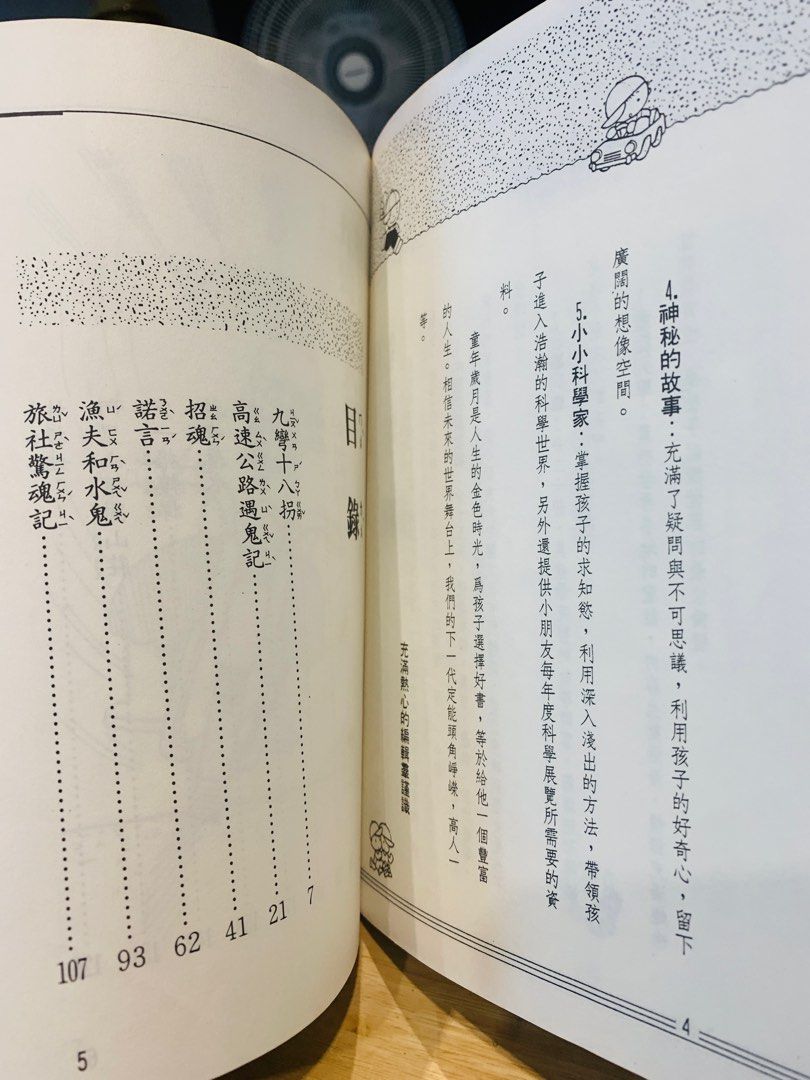 4.神秘的故事：充滿了疑問與不可思議，利用孩子的好奇心，留下
廣闊的想像空間。
5.小小科學家：掌握孩子的求知慾，利用深入淺出的方法，帶領孩
子進入浩瀚的科學世界，另外還提供小朋友每年度科學展覽所需要的資
料。
童年歲月是人生的金色時光，爲孩子選擇好書，等於給他一個豐富
的人生。相信未來的世界舞台上，我們的下一代定能頭角崢嶸，高人一
等。
充滿熱心的編輯羣謹識
4
目錄
九彎十八拐 7
高速公路遇鬼記 21
招魂 41
諾言 62
漁夫和水鬼 93
旅社驚魂記 107
5